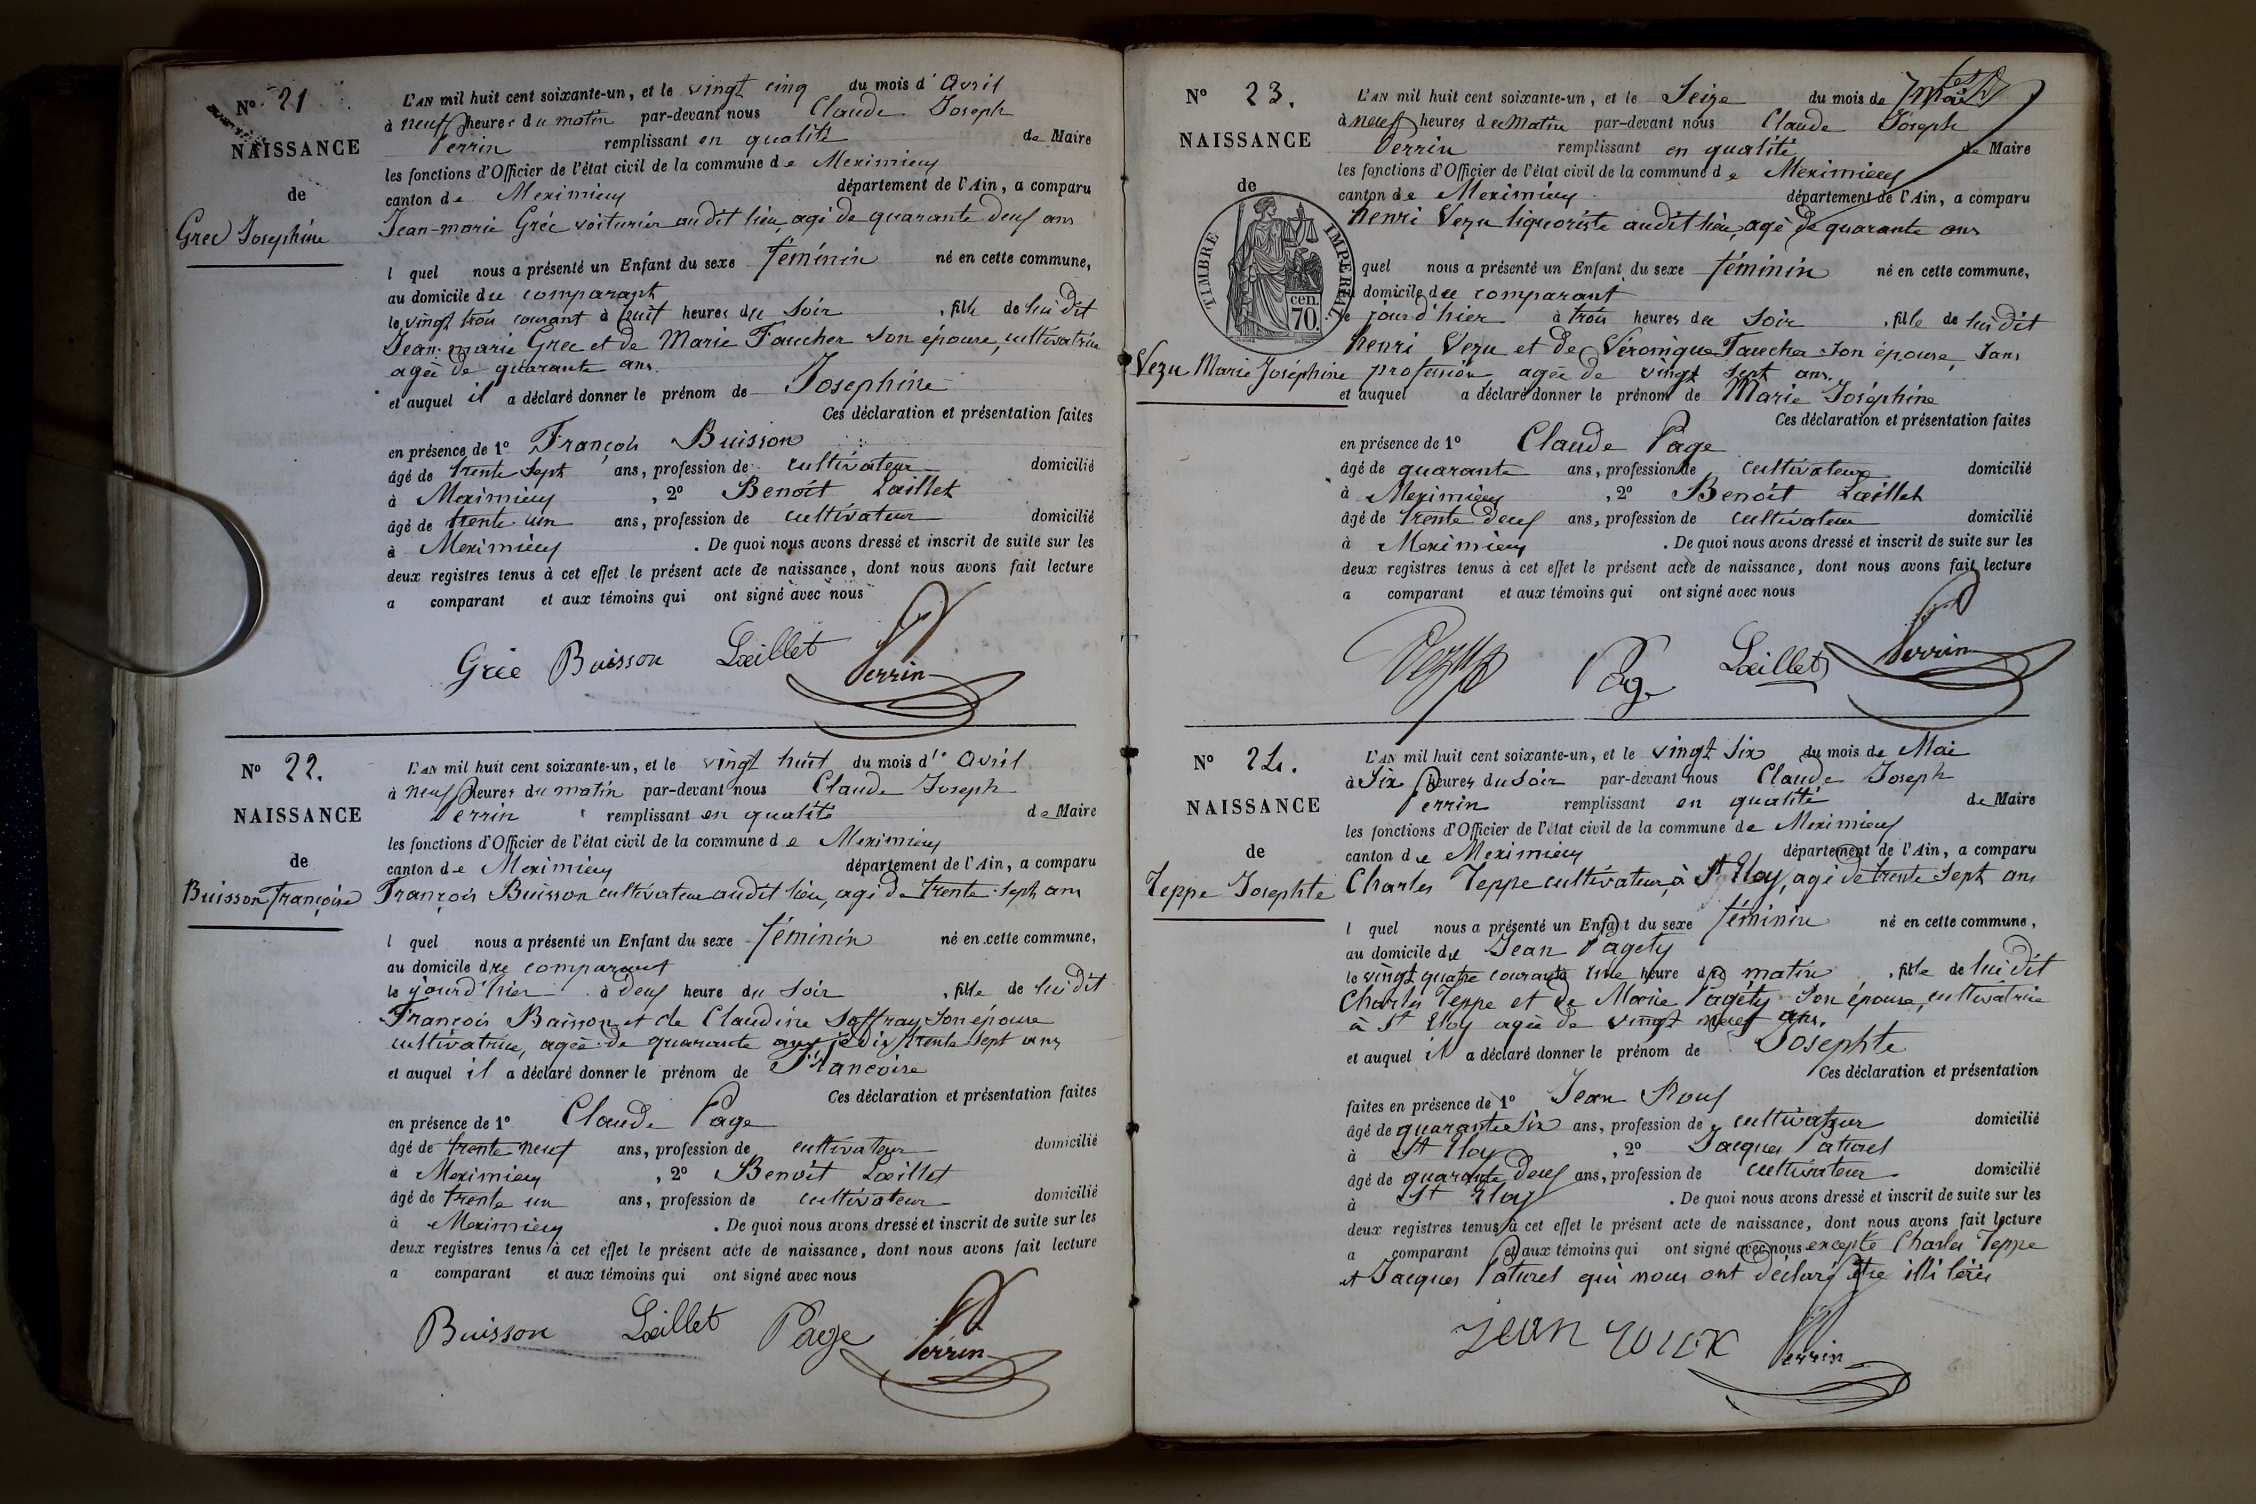 Nº 21
NAISSANCE
de
Grec Josephine
L'AN mil huit cent soixante-un, et le vingt cinq du mois d'Avril
à neuf heures du matin par-devant nous Claude Joseph
Perrin remplissant en qualité de Maire
les fonctions d'Officier de l'état civil de la commune de Meximieux
canton de Meximieux département de l'Ain, a comparu
Jean-marie Gréc voiturier audit lieu, agé de quarante deux ans
l quel nous a présenté un Enfant du sexe féminin né en cette commune,
au domicile du comparant
le vingt trois courant à huit heures du soir, fille de lui dit
Jean-marie Grec et de Marie Faucher son épouse, cultivatrice
agée de quarante ans
et auquel il a déclaré donner le prénom de Josephine
Ces déclaration et présentation faites
en présence de 1º François Buisson
âgé de trente sept ans, profession de cultivateur domicilié
à Meximieux, 2º Benoît Lœillet
âgé de trente un ans, profession de cultivateur domicilié
à Meximieux. De quoi nous avons dressé et inscrit de suite sur les
deux registres tenus à cet effet le présent acte de naissance, dont nous avons fait lecture
a comparant et aux témoins qui ont signé avec nous
Gréc Buisson Lœillet Perrin
Nº 22.
NAISSANCE
de
Buisson Françoise
L'AN mil huit cent soixante-un, et le vingt huit du mois d'Avril
à neuf heures du matin par-devant nous Claude Joseph
Perrin remplissant en qualité de Maire
les fonctions d'Officier de l'état civil de la commune de Meximieux
canton de Meximieux département de l'Ain, a comparu
François Buisson cultivateur audit lieu, agé de trente sept ans
l quel nous a présenté un Enfant du sexe féminin né en cette commune,
au domicile du comparant
le jourd'hier à deux heure du soir, fille de lui dit
François Buisson et de Claudine Soffray son épouse
cultivatrice, agée de quarante ans je dis trente sept ans
et auquel il a déclaré donner le prénom de Françoise
Ces déclaration et présentation faites
en présence de 1º Claude Page
âgé de trente neuf ans, profession de cultivateur domicilié
à Meximieux, 2º Benoît Lœillet
âgé de trente un ans, profession de cultivateur domicilié
à Meximieux. De quoi nous avons dressé et inscrit de suite sur les
deux registres tenus à cet effet le présent acte de naissance, dont nous avons fait lecture
a comparant et aux témoins qui ont signé avec nous
Buisson Lœillet Page Perrin
Nº 23.
NAISSANCE
de
TIMBRE IMPÉRIAL
cen. 70.
Vezu Marie Joséphine
L'AN mil huit cent soixante-un, et le Seize du mois de Mai
à neuf heures du Matin par-devant nous Claude Joseph
Perrin remplissant en qualité de Maire
les fonctions d'Officier de l'état civil de la commune de Meximieux
canton de Meximieux département de l'Ain, a comparu
henri Vezu liquoriste audit lieu, agé de quarante ans
quel nous a présenté un Enfant du sexe féminin né en cette commune,
domicile du comparant
le jourd'hier à trois heures du soir, fille de lui dit
henri Vezu et de Véronique Faucher son épouse, sans
profession agée de vingt sept ans.
et auquel a déclaré donner le prénom de Marie Joséphine
Ces déclaration et présentation faites
en présence de 1º Claude Page
âgé de quarante ans, profession de cultivateur domicilié
à Meximieux, 2º Benoît Lœillet
âgé de trente deux ans, profession de cultivateur domicilié
à Meximieux. De quoi nous avons dressé et inscrit de suite sur les
deux registres tenus à cet effet le présent acte de naissance, dont nous avons fait lecture
a comparant et aux témoins qui ont signé avec nous
Vezu Page Lœillet Perrin
Nº 24.
NAISSANCE
de
Teppe Josephte
L'AN mil huit cent soixante-un, et le vingt six du mois de Mai
à Six heures du soir par-devant nous Claude Joseph
Perrin remplissant en qualité de Maire
les fonctions d'Officier de l'état civil de la commune de Meximieux
canton de Meximieux département de l'Ain, a comparu
Charles Teppe cultivateur à St Eloy, agé de trente sept ans
l quel nous a présenté un Enfant du sexe féminin né en cette commune,
au domicile du Jean Pagety
le vingt quatre courant à une heure du matin, fille de lui dit
Charles Teppe et de Marie Pagéty son épouse, cultivatrice
à St Eloy agée de vingt neuf ans.
et auquel il a déclaré donner le prénom de Josephte
Ces déclaration et présentation
faites en présence de 1º Jean Roux
âgé de quarante six ans, profession de cultivateur domicilié
à St Eloy, 2º Jacques Paturel
âgé de quarante deux ans, profession de cultivateur domicilié
à St Eloy. De quoi nous avons dressé et inscrit de suite sur les
deux registres tenus à cet effet le présent acte de naissance, dont nous avons fait lecture
a comparant et aux témoins qui ont signé avec nous excepté Charles Teppe
et Jacques Paturel qui nous ont déclaré être illitérés
Jean roux Perrin